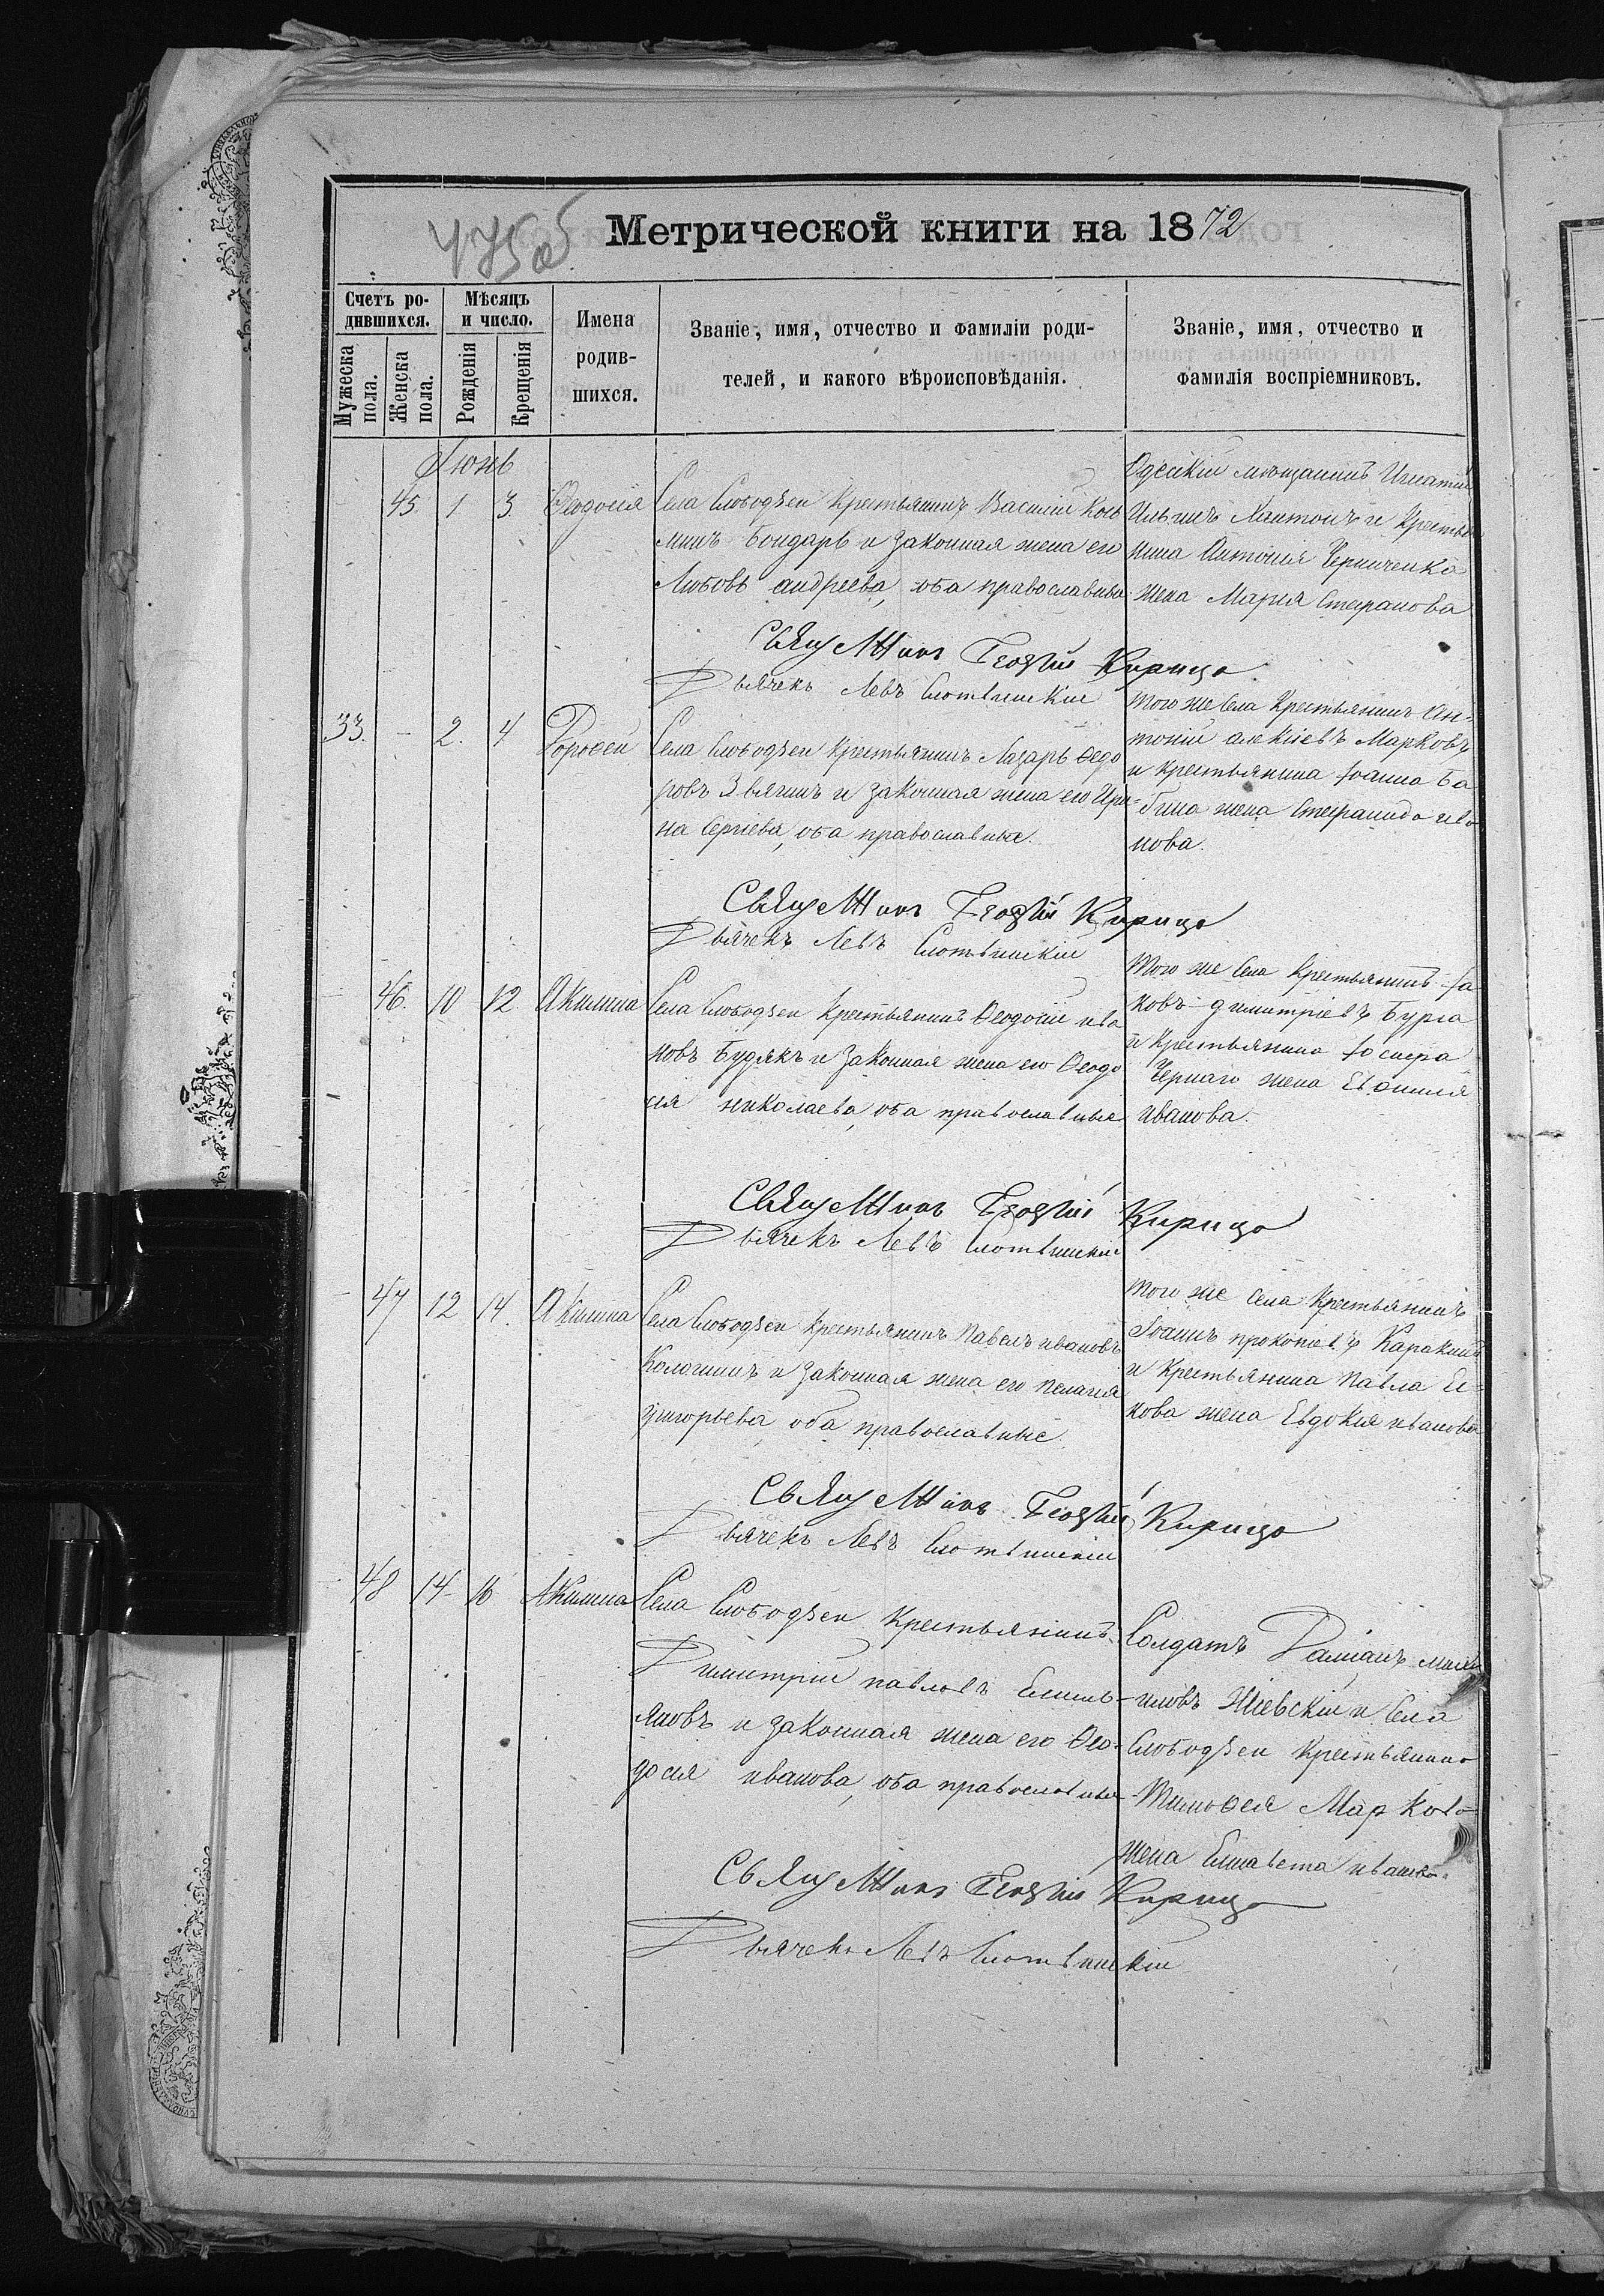 475об
Метрической книги на 1872
Счетъ ро-
дившихся.
Мѣсяцъ
и число.
Мужеска
пола.
Женска
пола.
Рожденія
Крещенія
Имена
родив-
шихся.
Званіе, имя, отчество и фамиліи роди-
телей, и какого вѣроисповѣданія.
Званіе, имя, отчество и
фамилія воспріемниковъ.
Іюнь
45. 1 3. Ѳеодосія
Села Слободзеи Крестьянинъ Василій Кось
минъ Бондарь и законная жена его
Любовь андреева, оба православные
Одескій мѣщанинъ Игнатій
Ильинъ Лантонъ и Крестья
нина Антонія Черниченка
жена Марія Стефанова
Священникъ Георгій Кирица
Дьячекъ Левъ Слотвинскій
33. - 2. 4 Дороѳей
Села Слободзеи Крестьянинъ Лазарь Ѳедо
ровъ Звягинъ и законная жена его Ири-
на Сергіева, оба православные.
того же Села Крестьянинъ Ан-
тоній алексіевъ Марковъ
и Крестьянина Іоанна Ба
бина жена Стефанида ива
нова.
Священникъ Георгій Кирица
Дьячекъ Левъ Слотвинскій
46. 10 12. Акилина
Села Слободзеи Крестьянинъ Ѳеодосій ива
новъ Будякъ и законная жена его Ѳеодо
сія николаева, оба православные
Того же Села Крестьянинъ Іа
ковъ димитріевъ Бурга
и Крестьянина Іосифа
Чернаго жена Евѳимія
иванова.
Священникъ Георгій Кирица
Дьячекъ Левъ Слотвинскій
47 12 14. Акилина
Села Слободзеи Крестьянинъ Павелъ ивановъ
Калагинъ и законная жена его Пелагія
григорьева, оба православные
того же Села Крестьянинъ
Іоаннъ прокопіевъ
и Крестьянина Павла
жена Евдокия иванова
Священникъ Георгій Кирица
Дьячекъ Левъ Слотвинскій
48 14 16 Акилина
Села Слободзеи Крестьянинъ
Димитрій павловъ Емиль-
яновъ и законная жена его Ѳео-
досія иванова, оба православные
Солдатъ Даміанъ
Кіевскій и Села
Слободзеи Крестьянина
Тимоѳея Маркова
жена Елисавета иванова
Священникъ Георгій Кирица
Дьячекъ Левъ Слотвинскій